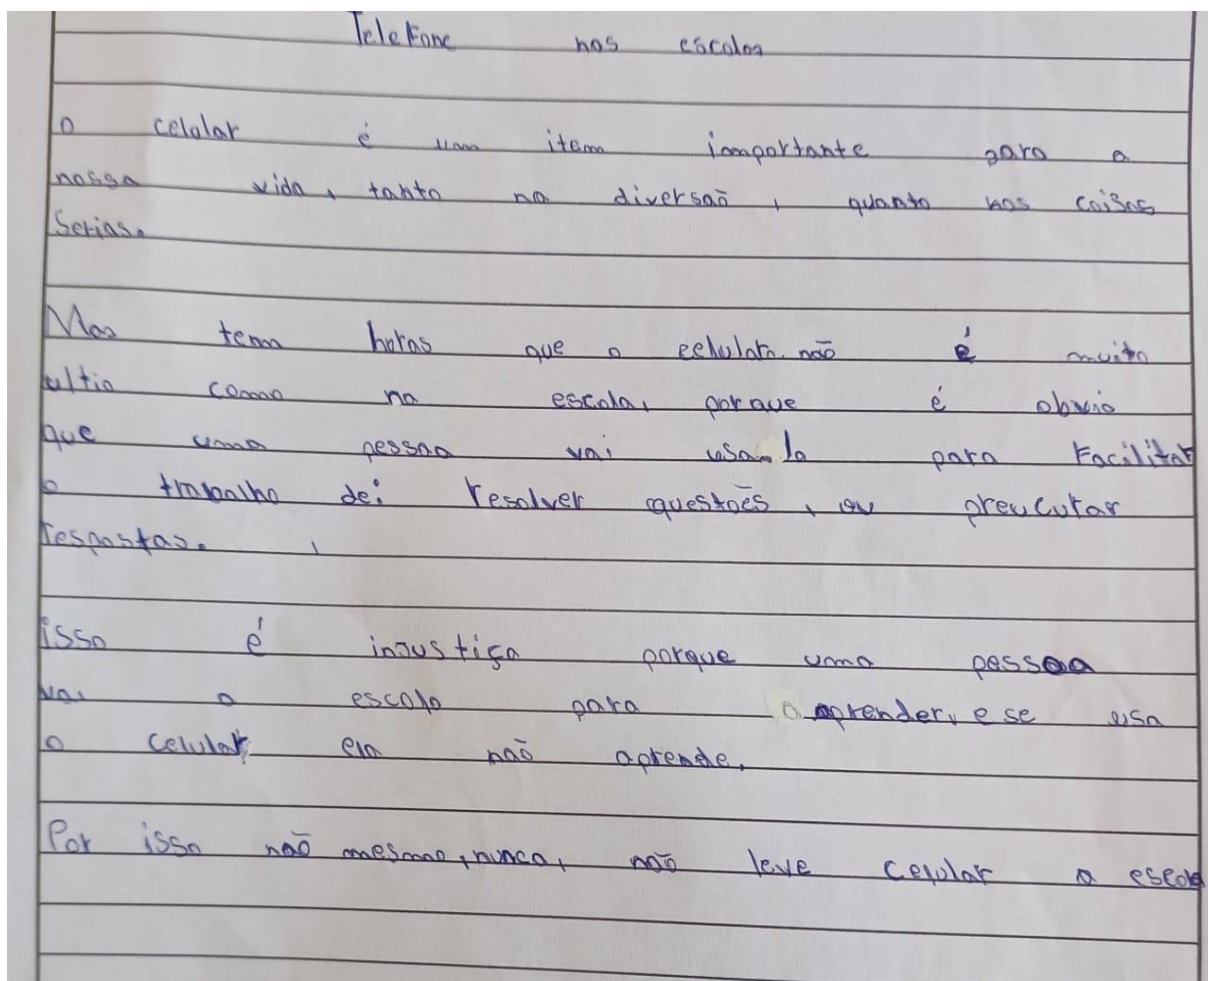 Telefone nas escolas
o celular é um item importante para a
nossa vida, tanto na diversaõ, quanto nas coisas
Serias.
Mas tem horas que o celular não é muito
ultio como na escola, porque é obvio
que uma pessoa vai usa-lo para Facilitar
o trabalho de: resolver questoẽs, ou preucurar
respostas.
isso é injustiça porque uma pessoa
vai a escola para aprender, e se usa
o celular, ela naõ aprende.
Por isso naõ mesmo, nunca, naõ leve celular a escola